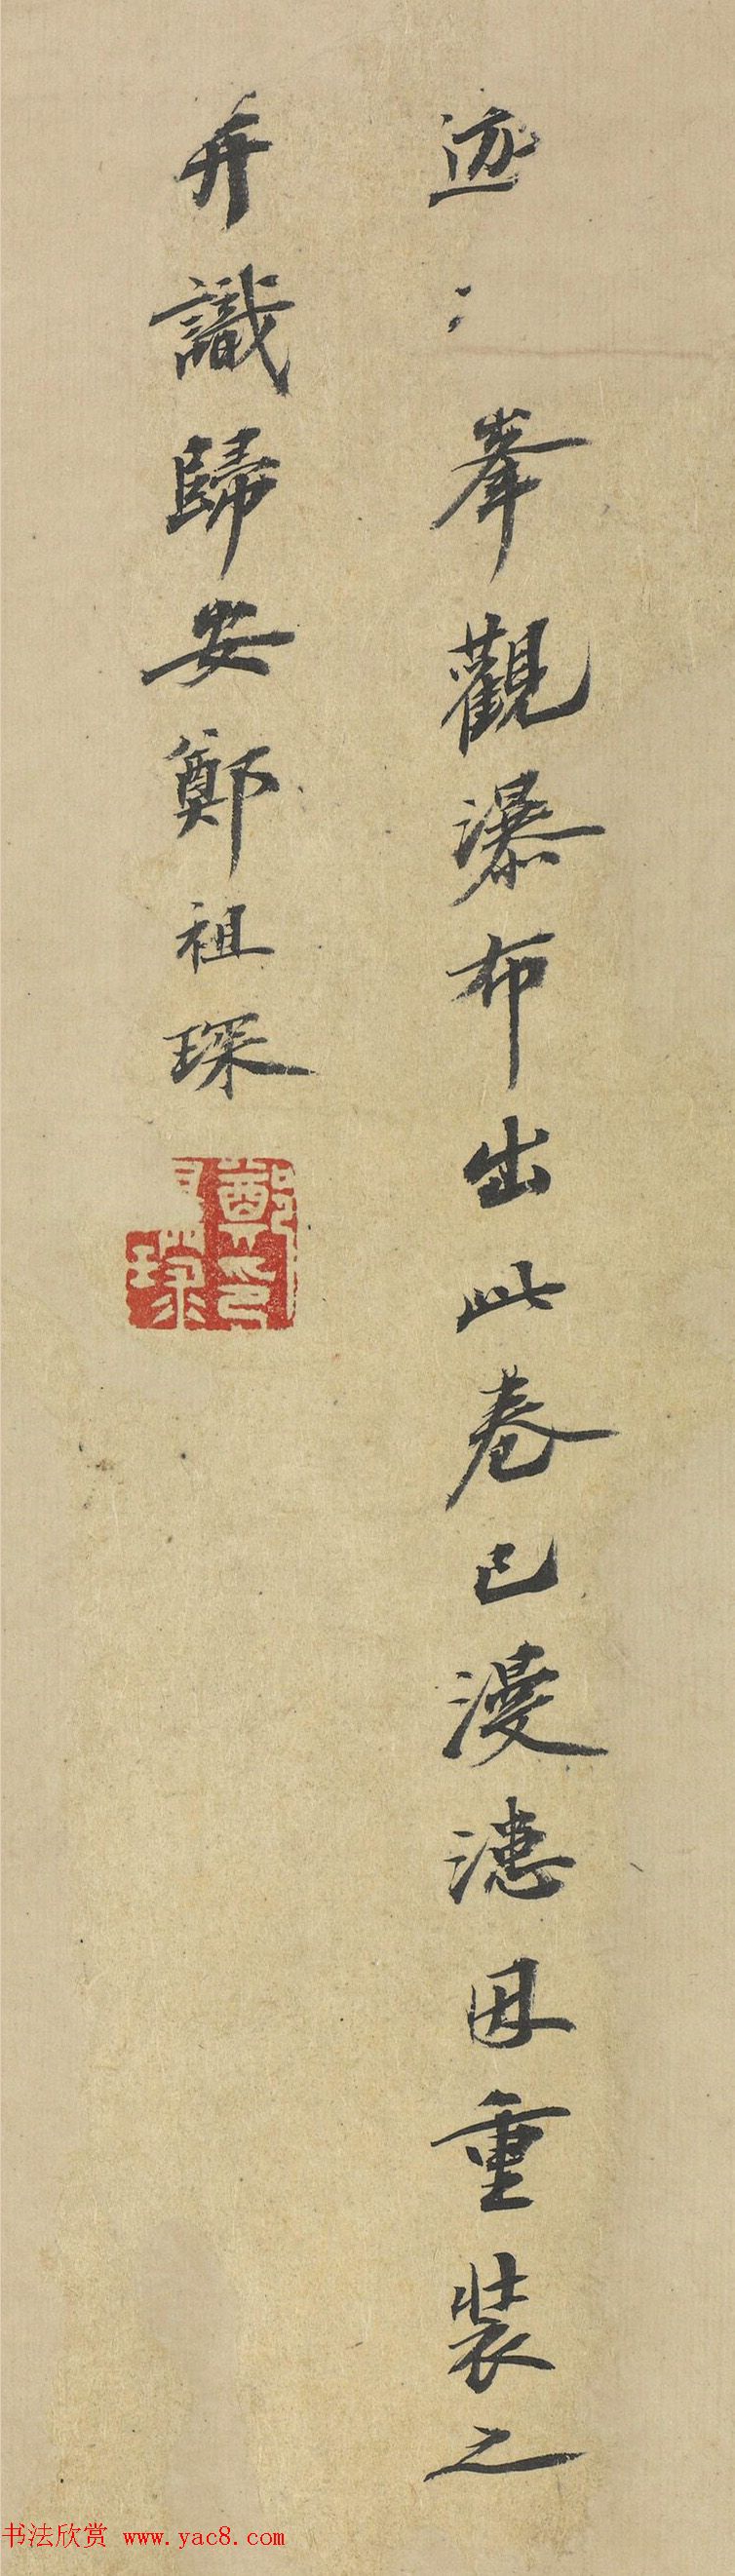 峯觀瀑布出此卷已漫漶因重裝之
并識歸安鄭祖琛
鄭印祖琛
书法欣赏 www.yac8.com